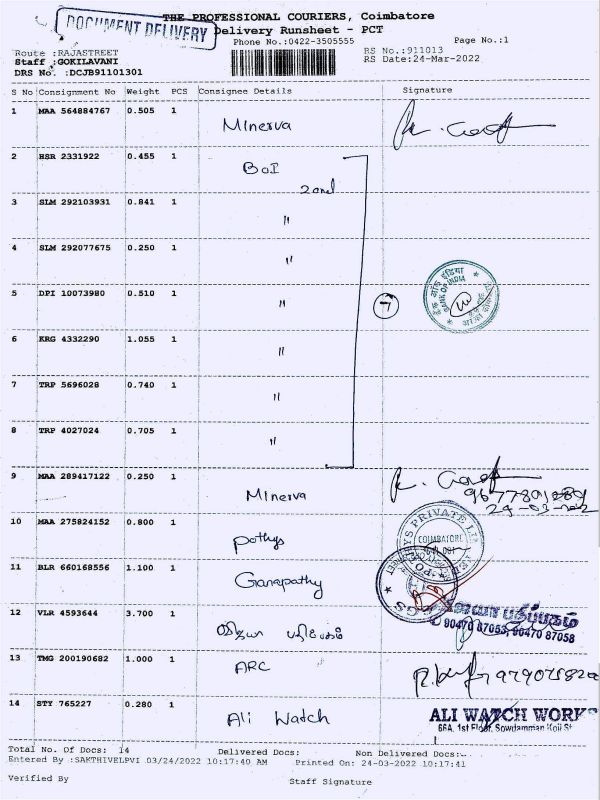 DOCUMENT DELIVERY
THE PROFESSIONAL COURIERS, Coimbatore
Delivery Runsheet - PCT
Phone No.:0422-3505555
Page No.:1
Route :RAJASTREET
RS No.:911013
Staff :GOKILAVANI
RS Date:24-Mar-2022
DRS No. :DCJB91101301
S No Consignment No Weight PCS Consignee Details Signature
1 MAA 564884767 0.505 1 Minerva
2 HSR 2331922 0.455 1 BOI
2 and
3 SLM 292103931 0.841 1 "
4 SLM 292077675 0.250 1 "
5 DPI 10073980 0.510 1 " 7
बैंक ऑफ इंडिया
BANK OF INDIA
6 KRG 4332290 1.055 1 "
7 TRP 5696028 0.740 1 "
8 TRP 4027024 0.705 1 "
9 MAA 289417122 0.250 1 Minerva
24-03-202
10 MAA 275824152 0.800 1 pothys
COIMBATORE
11 BLR 660168556 1.100 1 Ganapathy
12 VLR 4593644 3.700 1 விஜயா பதிப்பகம்
விஜயா பதிப்பகம்
90470 87053, 90470 87058
13 TMG 200190682 1.000 1 ARC
14 STY 765227 0.280 1 Ali Watch
ALI WATCH WORKS
66A, 1st Floor, Sowdamman Koil St
Total No. Of Docs: 14 Delivered Docs: Non Delivered Docs:
Entered By :SAKTHIVELPVI 03/24/2022 10:17:40 AM Printed On: 24-03-2022 10:17:41
Verified By Staff Signature